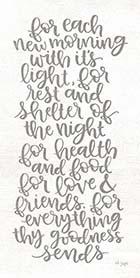 for each
new morning
with its
light, for
rest and
shelter of
the night
for health
and food
for love &
friends, for
everything
thy goodness
sends